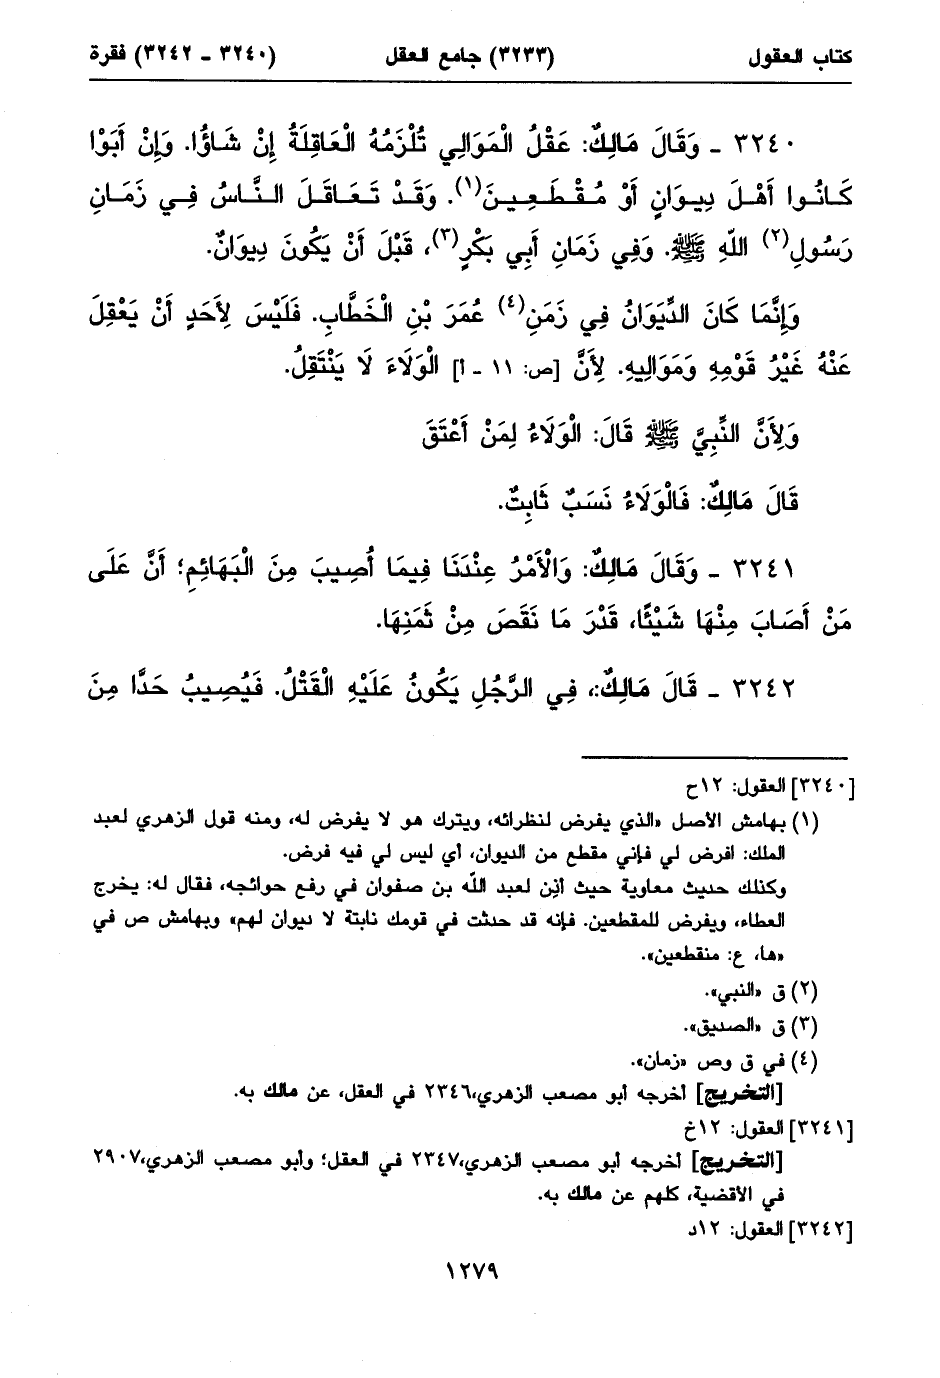 كتاب العقول (٣٢٣٣) جامع العقل (٣٢٤٠ - ٣٢٤٢) فقرة
٣٢٤٠ - وَقَالَ مَالِكٌ: عَقْلُ الْمَوَالِي تُلْزَمُهُ الْعَاقِلَةُ إِنْ شَاؤُا. وَإِنْ أَبَوْا
كَانُوا أَهْلَ دِيوَانٍ أَوْ مُقْطَعِينَ(١). وَقَدْ تَعَاقَلَ النَّاسُ فِي زَمَانِ
رَسُولِ(٢) اللّٰهِ ﷺ. وَفِي زَمَانِ أَبِي بَكْرٍ(٣)، قَبْلَ أَنْ يَكُونَ دِيوَانٌ.
وَإِنَّمَا كَانَ الدِّيَوَانُ فِي زَمَنِ(٤) عُمَرَ بْنِ الْخَطَّابِ. فَلَيْسَ لِأَحَدٍ أَنْ يَعْقِلَ
عَنْهُ غَيْرُ قَوْمِهِ وَمَوَالِيهِ. لِأَنَّ [ص: ١١ - أ] الْوَلَاءَ لَا يَنْتَقِلُ.
وَلِأَنَّ النَّبِيَّ ﷺ قَالَ: الْوَلَاءُ لِمَنْ أَعْتَقَ
قَالَ مَالِكٌ: فَالْوَلَاءُ نَسَبٌ ثَابِتٌ.
٣٢٤١ - وَقَالَ مَالِكٌ: وَالْأَمْرُ عِنْدَنَا فِيمَا أُصِيبَ مِنَ الْبَهَائِمِ؛ أَنَّ عَلَى
مَنْ أَصَابَ مِنْهَا شَيْئًا، قَدْرَ مَا نَقَصَ مِنْ ثَمَنِهَا.
٣٢٤٢ - قَالَ مَالِكٌ:، فِي الرَّجُلِ يَكُونُ عَلَيْهِ الْقَتْلُ. فَيُصِيبُ حَدًّا مِنَ
[٣٢٤٠] العقول: ١٢ح
(١) بهامش الأصل «الذي يفرض لنظرائه، ويترك هو لا يفرض له، ومنه قول الزهري لعبد
الملك: افرض لي فإني مقطع من الديوان، أي ليس لي فيه فرض.
وكذلك حديث معاوية حيث أذن لعبد الله بن صفوان في رفع حوائجه، فقال له: يخرج
العطاء، ويفرض للمقطعين. فإنه قد حدثت في قومك نابتة لا ديوان لهم» وبهامش ص في
«ها، ع: منقطعين».
(٢) ق «النبي».
(٣) ق «الصديق».
(٤) في ق وص «زمان».
[التخريج] أخرجه أبو مصعب الزهري،٢٣٤٦ في العقل، عن مالك به.
[٣٢٤١] العقول: ١٢خ
[التخريج] أخرجه أبو مصعب الزهري،٢٣٤٧ في العقل؛ وأبو مصعب الزهري،٢٩٠٧
في الأقضية، كلهم عن مالك به.
[٣٢٤٢] العقول: ١٢د
١٢٧٩